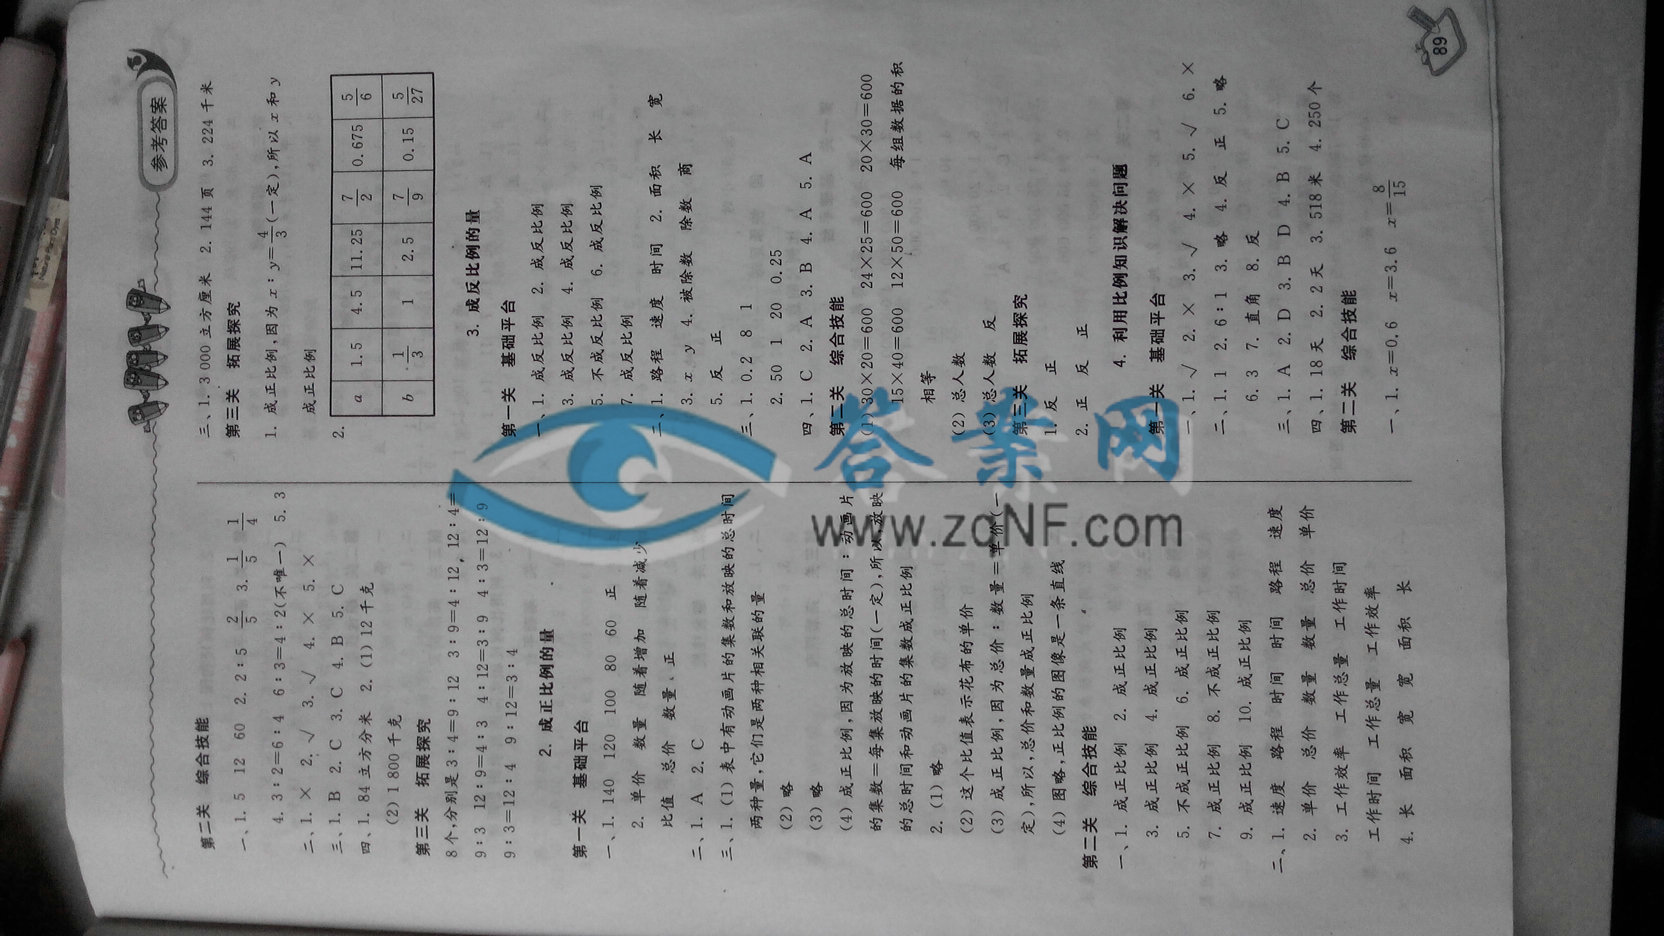 参考答案
第二关 综合技能
一、1. 5 12 60 2. 2∶5 2/5 3. 1/5 1/4
4. 3∶2=6∶4 6∶3=4∶2(不唯一) 5. 3
二、1. × 2. √ 3. √ 4. × 5. ×
三、1. B 2. C 3. C 4. B 5. C
四、1. 84 立方分米 2. (1)12 千克
(2)1 800 千克
第三关 拓展探究
8 个,分别是 3∶4=9∶12 3∶9=4∶12, 12∶4=
9∶3 12∶9=4∶3 4∶12=3∶9 4∶3=12∶9
9∶3=12∶4 9∶12=3∶4
2. 成正比例的量
第一关 基础平台
一、1. 140 120 100 80 60 正
2. 单价 数量 随着增加 随着减少
比值 总价 数量 正
二、1. A 2. C
三、1. (1)表中有动画片的集数和放映的总时间
两种量,它们是两种相关联的量
(2)略
(3)略
(4)成正比例,因为放映的总时间∶动画片
的集数=每集放映的时间(一定),所以放映
的总时间和动画片的集数成正比例
2. (1)略
(2)这个比值表示花布的单价
(3)成正比例,因为总价∶数量=单价(一
定),所以,总价和数量成正比例
(4)图略,正比例的图像是一条直线
第二关 综合技能
一、1. 成正比例 2. 成正比例
3. 成正比例 4. 成正比例
5. 不成正比例 6. 成正比例
7. 成正比例 8. 不成正比例
9. 成正比例 10. 成正比例
二、1. 速度 路程 时间 时间 路程 速度
2. 单价 总价 数量 数量 总价 单价
3. 工作效率 工作总量 工作时间
工作时间 工作总量 工作效率
4. 长 面积 宽 宽 面积 长
三、1. 3 000 立方厘米 2. 144 页 3. 224 千米
第三关 拓展探究
1. 成正比例,因为 x∶y=4/3(一定),所以 x 和 y
成正比例
2.
a 1.5 4.5 11.25 7/2 0.675 5/6
b 1/3 1 2.5 7/9 0.15 5/27
3. 成反比例的量
第一关 基础平台
一、1. 成反比例 2. 成反比例
3. 成反比例 4. 成反比例
5. 不成反比例 6. 成反比例
7. 成反比例
二、1. 路程 速度 时间 2. 面积 长 宽
3. x y 4. 被除数 除数 商
5. 反 正
三、1. 0.2 8 1
2. 50 1 20 0.25
四、1. C 2. A 3. B 4. A 5. A
第二关 综合技能
(1)30×20=600 24×25=600 20×30=600
15×40=600 12×50=600 每组数据的积
相等
(2)总人数
(3)总人数 反
第三关 拓展探究
1. 反 正
2. 正 反 正
4. 利用比例知识解决问题
第一关 基础平台
一、1. √ 2. × 3. √ 4. × 5. √ 6. ×
二、1. 1 2. 6∶1 3. 略 4. 反 正 5. 略
6. 3 7. 直角 8. 反
三、1. A 2. D 3. B D 4. B 5. C
四、1. 18 天 2. 2 天 3. 518 米 4. 250 个
第二关 综合技能
一、1. x=0.6 x=3.6 x=8/15
89
答案网
www.zqNF.com